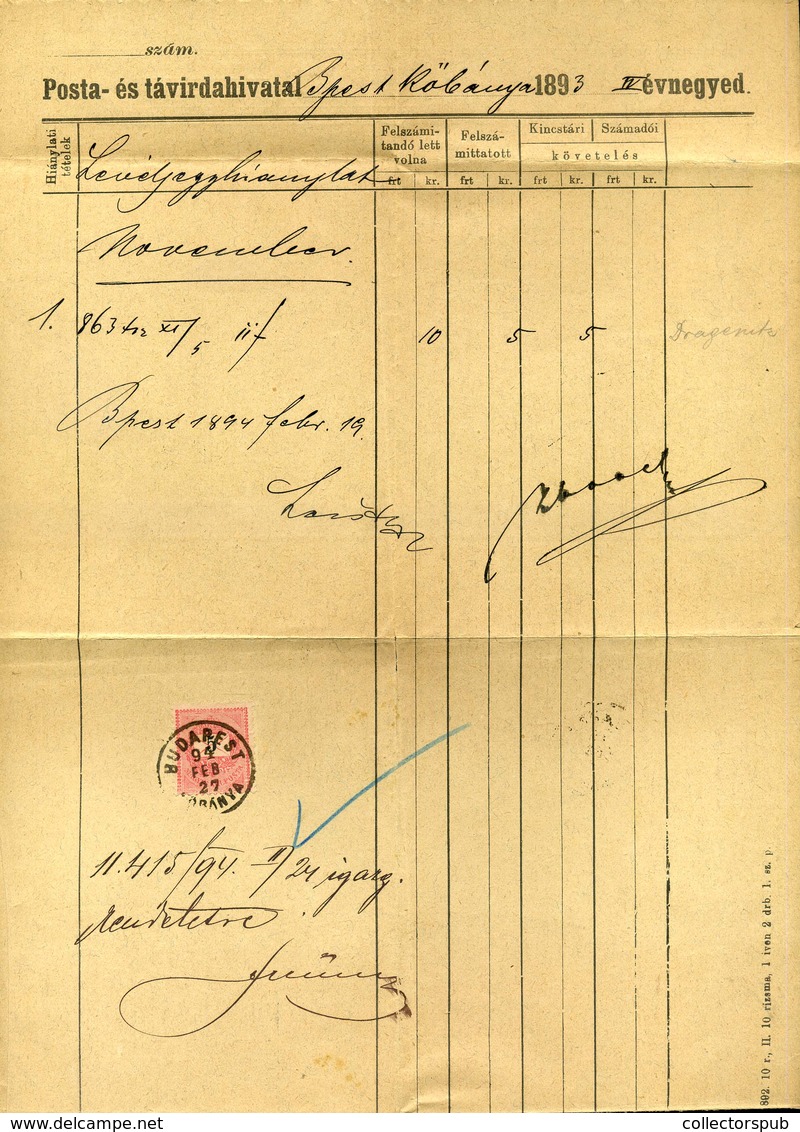 szám.
Posta- és távirdahivatal Bpest Kőbánya 1893 IV évnegyed.
Hiánylati tételek
Felszámitandó lett volna
Felszámittatott
Kincstári
Számadói
követelés
frt kr. frt kr. frt kr. frt kr.
Levéljegyhiánylat
November.
1. 863 XI/5 10 5 5
Bpest 1894 febr. 19.
BUDAPEST
5
94
FEB
27
KŐBÁNYA
11.415/94. II/24 igazg.
rendeletre.
892. 10 r., II. 10 rizsma, 1 iven 2 drb. 1. sz. p.
collectorspub
www.delcampe.net